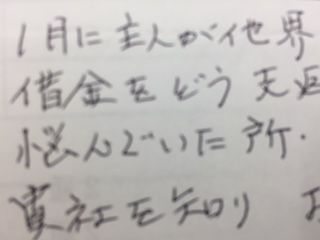 1月に主人が他界
借金をどう支返
悩んでいた所.
貴社を知り